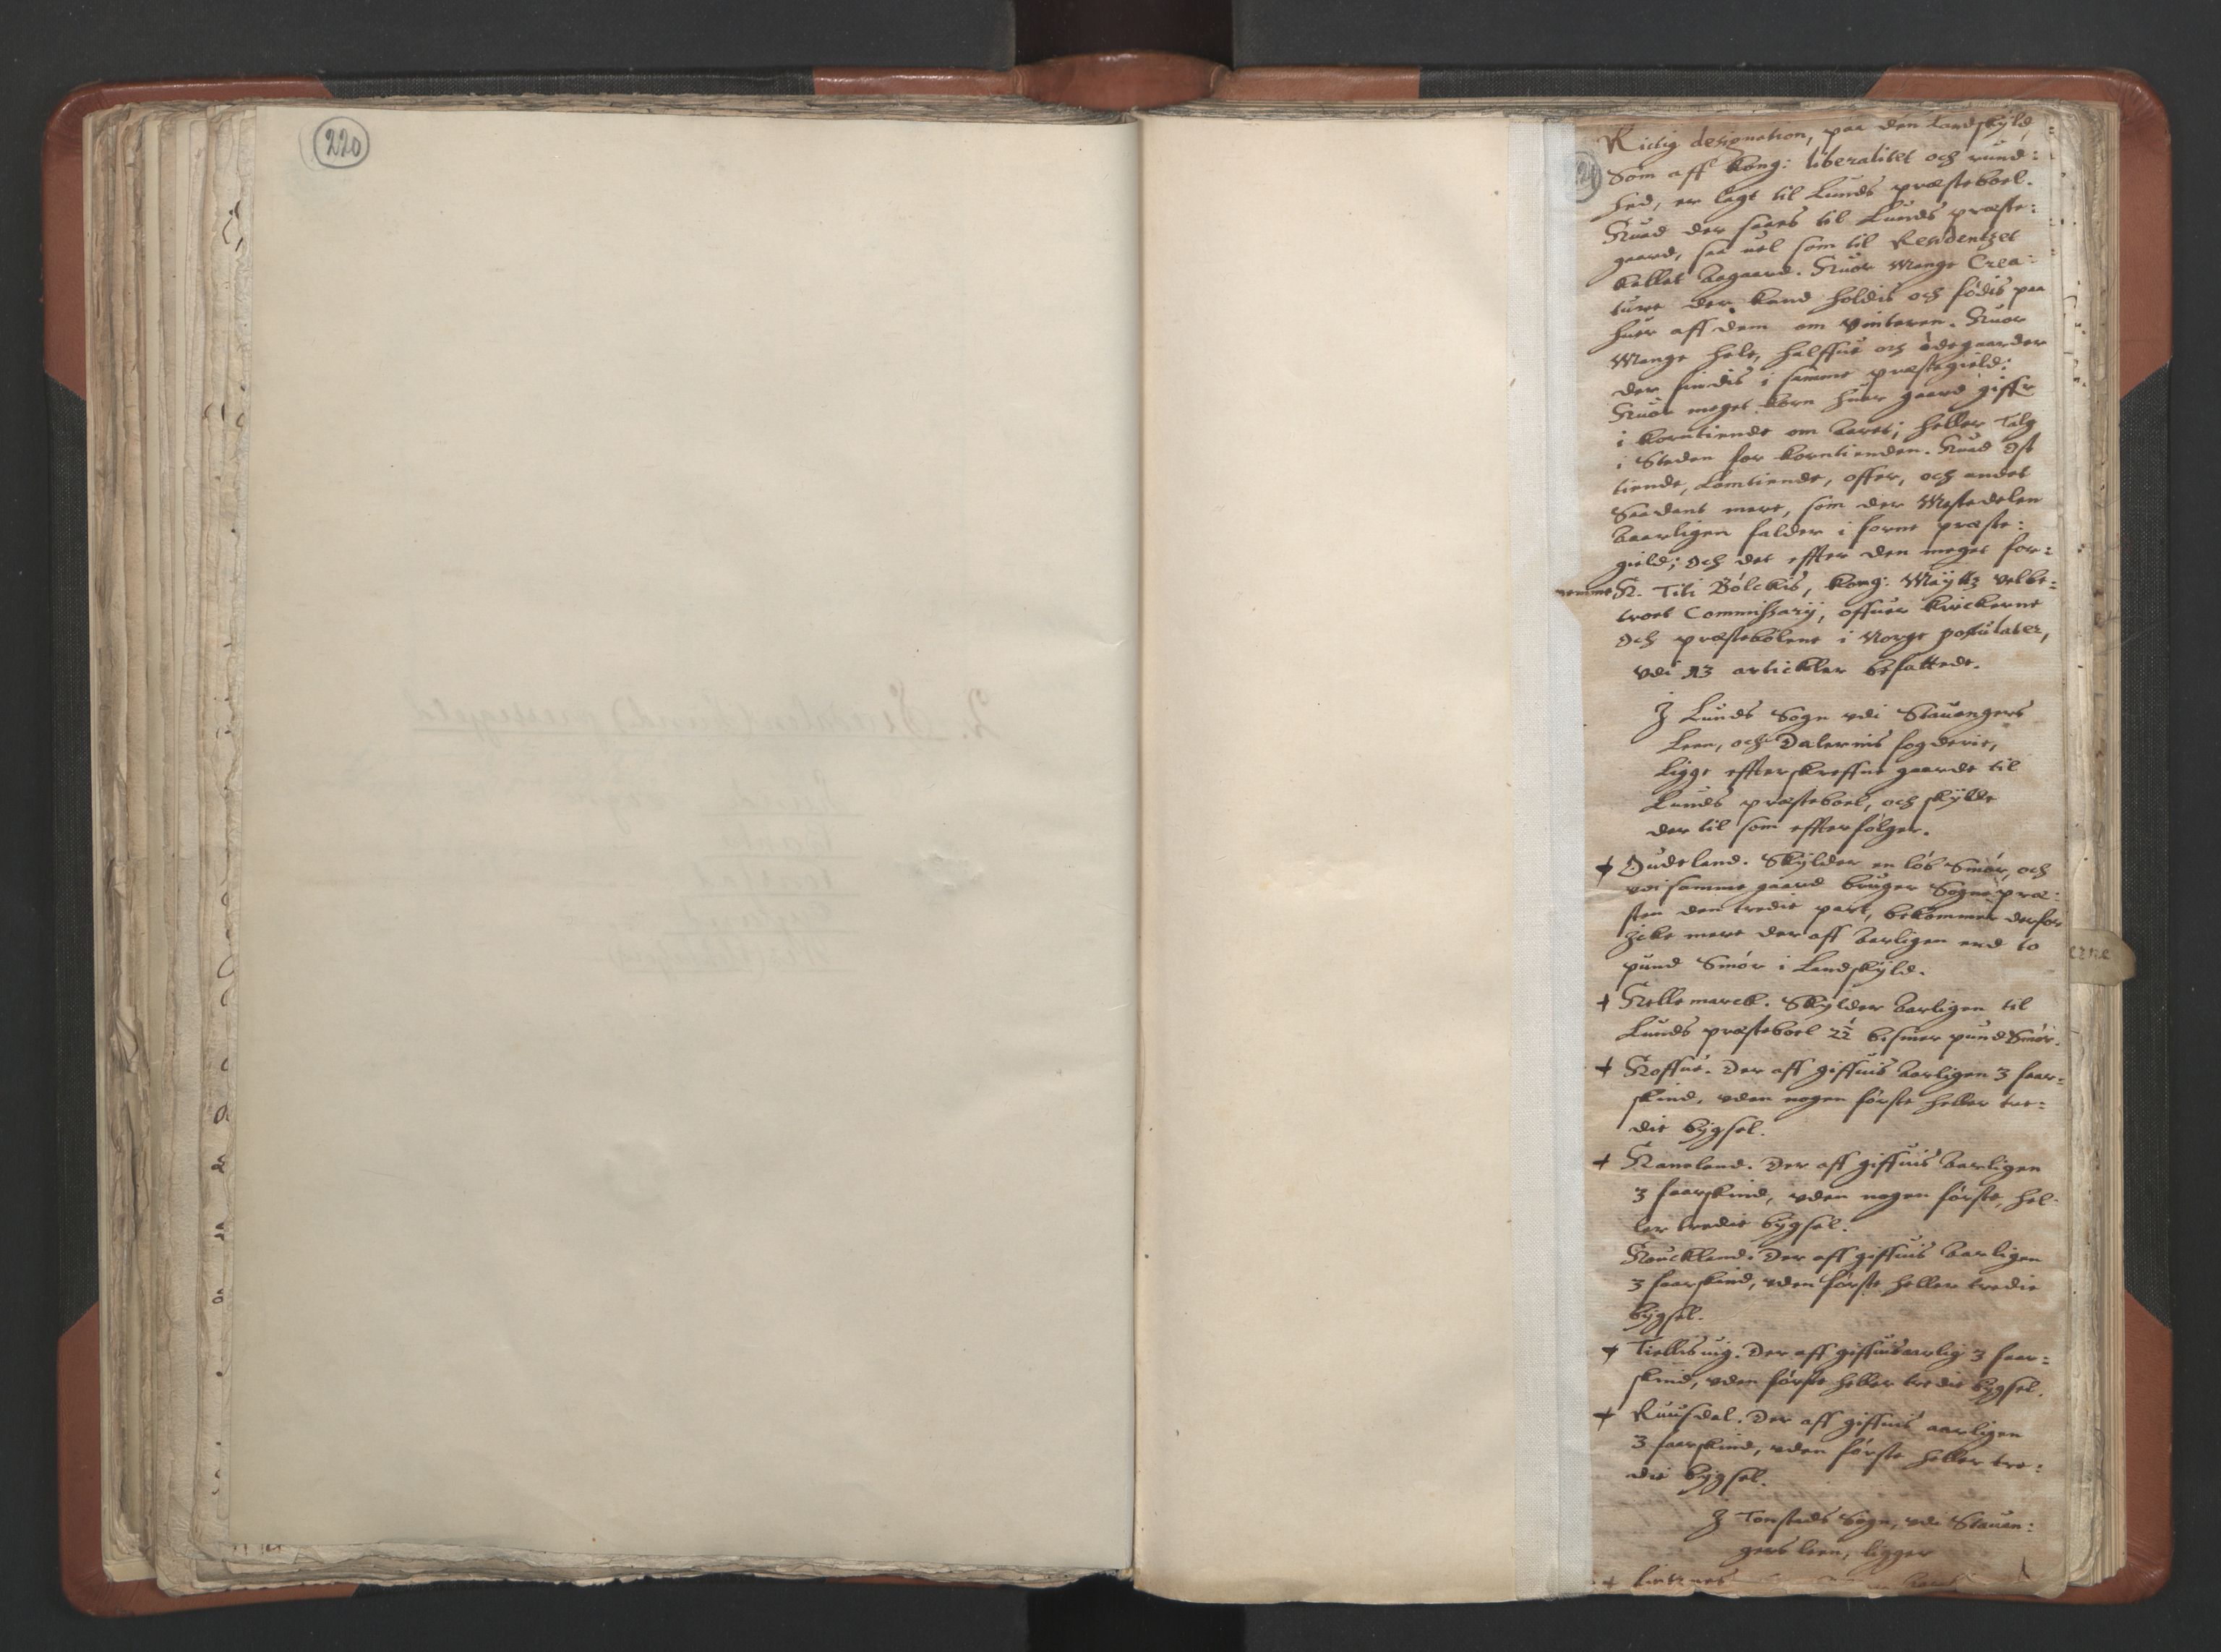 220
Rictig designation, paa den Landskyld,
Som aff Kong: liberalitet och rund:
hed, er lagt til Lunds præsteboel.
Huad der saaes til Lunds præste:
gaard, saa vel som til Residentzet
kallet Aagaard. Huor Mange Crea:
ture der kand holdis och födis paa
huer aff dem om Vinteren. Huor
Mange hele, halffue och ödegaarder
der findis i samme præstegield:
Huor meget korn huer gaard giffr
i korntiende om Aaret; heller Talg
i Steden for korntienden. Huad Ost
tiende, Lamtiende, offer, och andet
Saadant mere, som der Mestedelen
Aaarligen falder i forne præste:
gield; Och det effter den meget for:
nemme H. Titi Bölckis, kong: Maÿttz velbe:
troet Commissarij, offuer kirckerne
Och præstebolene i Norge postulater,
vdi 13 artickler befattede.
J Lunds Sogn vdi Stauangers
Leen, och Dalernis fogderie,
Ligge effterskreffne gaarde til
Lunds præsteboel, och skÿlde
der til som effterfölger.
+ Gudeland. Skÿlder en löb Smör, och
vdi samme gaard bruger Sognepræ:
sten den tredie part, bekommer derfor
Jcke mere der aff Aarligen end to
pund Smör i Landskÿld.
+ Hellemarck. Skÿlder Aarligen til
Lunds præsteboel 2 1/2 bismer pund Smör.
+ Hoffue. Der aff giffuis Aarligen 3 faar=
skind, vden nogen förste heller tre=
die bÿgsel.
+ Haneland. Der aff giffuis Aarligen
3 faarskind, vden nogen förste, hel:
ler tredie bÿgsel.
Houckland. Der aff giffuis Aarligen
3 faarskind, vden förste heller tredie
bÿgsel.
+ Tiellisuig. Der aff giffuis aarlig 3 faar=
skind, vden förste heller tredie bÿgsel.
+ Ruusdal. Der aff giffuis aarligen
3 faarskind, vden förste heller tre:
die bÿgsel.
J Tonstads Sogn, vdi Stauan:
gers leen, ligger
+